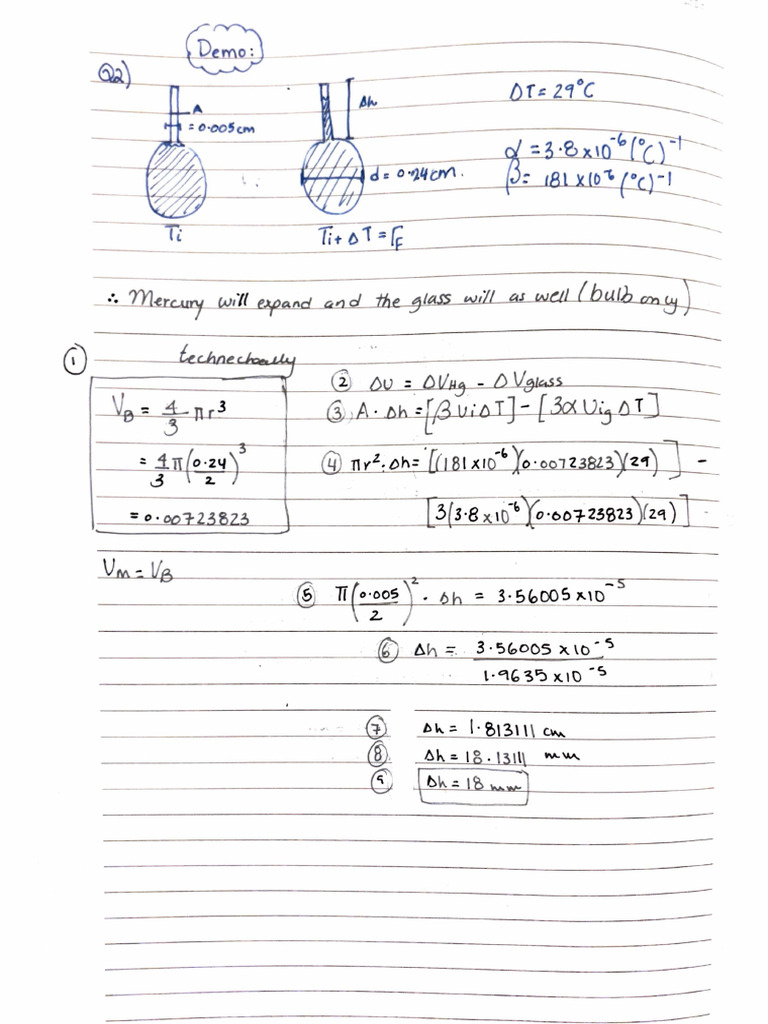 Demo:
Q2)
A
= 0.005cm
Δh
d = 0.24cm.
Ti
Ti + ΔT = TF
ΔT = 29°C
α = 3.8 x 10^-6 (°C)^-1
β = 181 x 10^-6 (°C)^-1
∴ Mercury will expand and the glass will as well (bulb only)
① technecheally
VB = 4/3 πr³
= 4/3 π(0.24/2)³
= 0.00723823
② ΔU = ΔVHg - ΔVglass
③ A · Δh = [βUiΔT] - [3αUigΔT]
④ πr² · Δh = [(181x10^-6)(0.00723823)(29)] -
[3(3.8x10^-6)(0.00723823)(29)]
UM = VB
⑤ π(0.005/2)² · Δh = 3.56005 x10^-5
⑥ Δh = 3.56005 x 10^-5 / 1.9635 x 10^-5
⑦ Δh = 1.813111 cm
⑧ Δh = 18.13111 mm
⑨ Δh = 18 mm